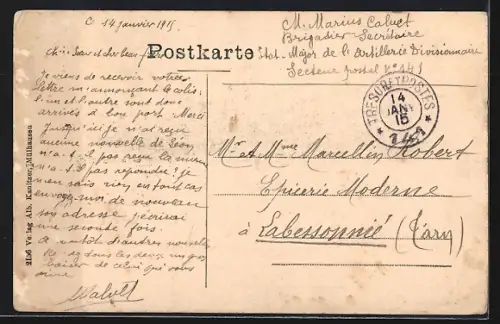 C 14 Janvier 1915
M. Marius Calvet
Brigadier Secrétaire
Etat-Major de l'Artillerie Divisionnaire
Secteur postal N° 141
Postkarte
TRESOR ET POSTES
14
JANV
15
* 141 *
Chère Soeur et cher beau
Je viens de recevoir votre
lettre m'annonçant le colis
l'un et l'autre sont donc
arrivés à bon port. Merci
Jusqu'ici je n'ai reçu
aucune nouvelle de Léon
n'a-t-il pas reçu la mienne
n'a-t-il pas répondu? je
n'en sais rien en tout cas
envoyez-moi de nouveau
son adresse j'écrirai
une seconde fois.
A bientôt d'autres nouvelles
tous les deux un gros
baiser de celui qui vous
aime
MCalvet
Mr et Mme Marcellin Robert
Epicerie Moderne
à Labessonnié (Tarn)
2156 Verlag Alb. Kanitzer, Mülhausen